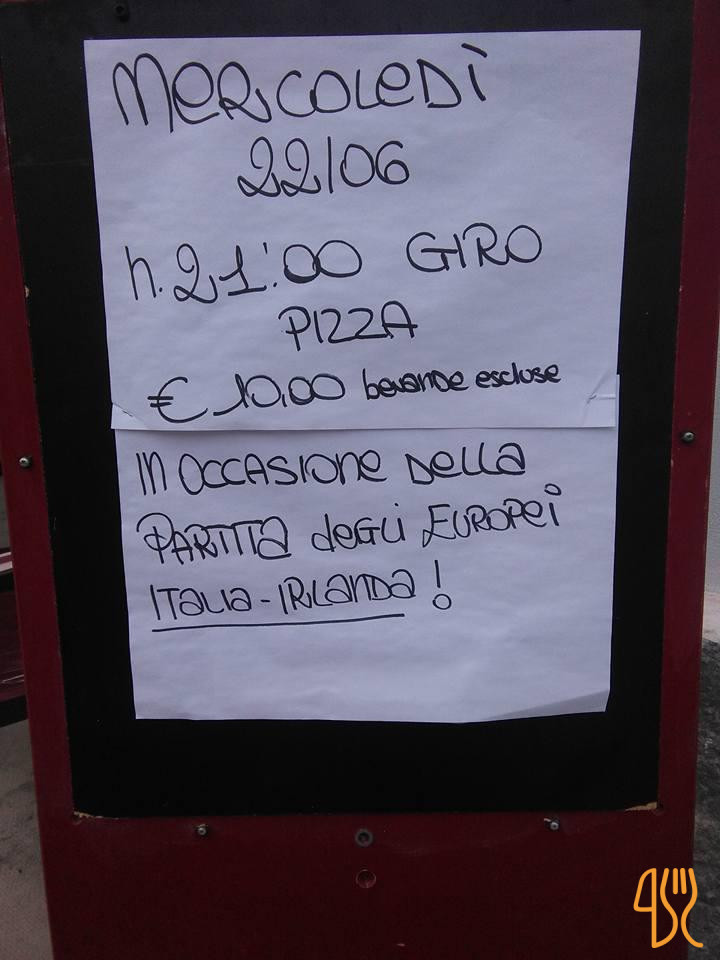 MERCOLEDÌ
22/06
h. 21:00 GIRO
PIZZA
€ 10,00 bevande escluse
IN OCCASIONE DELLA
PARTITA DEGLI EUROPEI
ITALIA-IRLANDA!